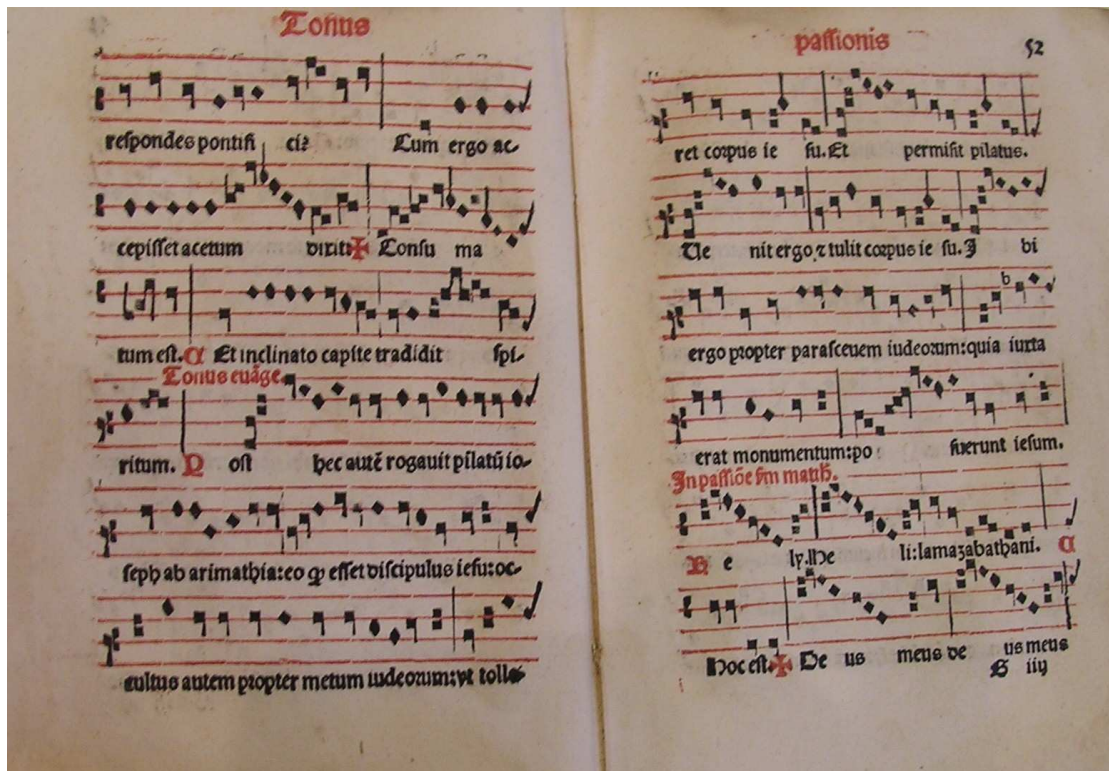 Tonus
respondēs pontifi ci? Cum ergo ac-
cepisset acetum dixit: ✠ Consu ma
tum est. C Et inclinato capite tradidit spi-
Tonus euāge.
ritum. P ost hec autē rogauit pilatū io-
seph ab arimathia: eo ꝙ esset discipulus iesu: oc-
cultus autem propter metum iudeorum: vt tolle-
passionis 52
ret corpus ie su. Et permisit pilatus.
Ue nit ergo ⁊ tulit corpus ie su. I bi
b
ergo propter parasceuem iudeorum: quia iuxta
erat monumentum: po suerunt iesum.
In passiōe sm math.
H e ly. He li: lamazabathani. C
Hoc est. ✠ De us meus de us meus
G iiij